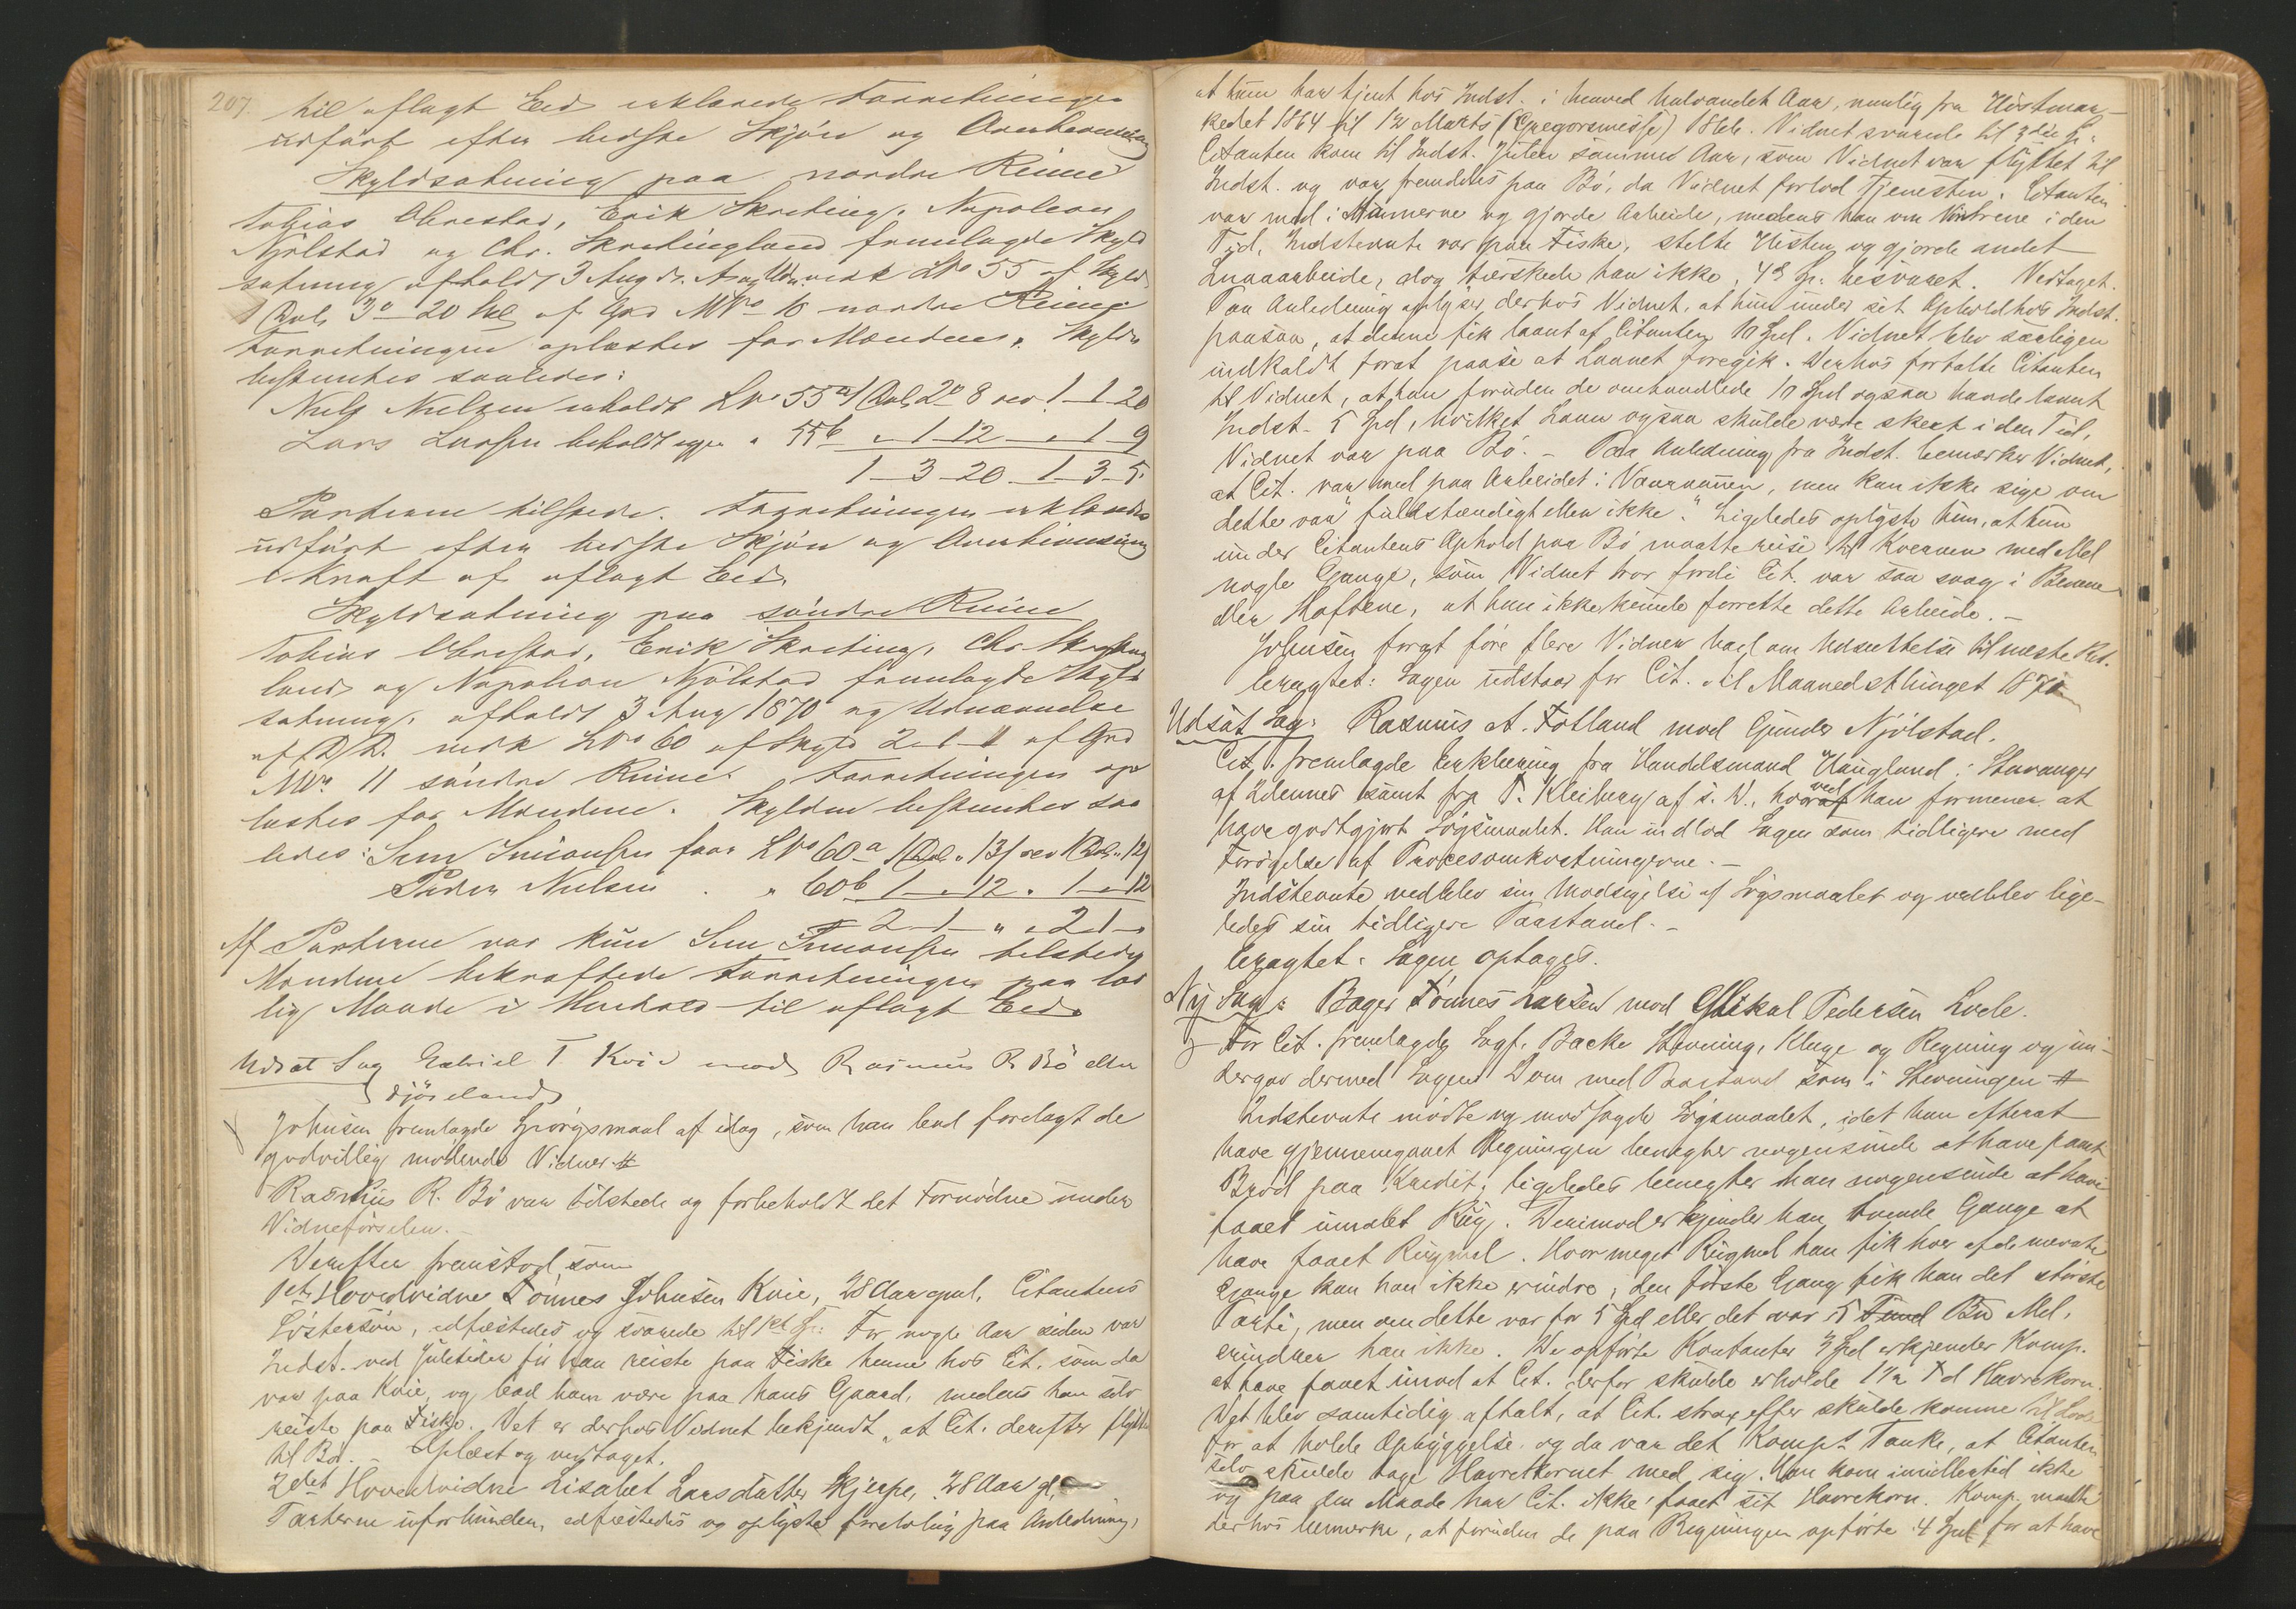 207.
til aflagt Eed erklærede Forretningen
udført efter bedste Skjøn og Overbevisning
Skyldsætning paa nordre Riime
Tobias Obrestad, Erik Skreting, Napoleon
Njølstad og Chr. Skretingland fremlagde Skyld
sætning afholdt 3 Aug d. A. LNo 55 af Skyld
1 Dal. 3 20 Skl af Grd MNo 10 nordre Riime
Forretningen oplæstes for Mændene. Skylden
bestemtes saaledes:
Niels Nielsen erholdt LNo 55a 1 Dal. 2 8 rev. 1-1-20
Lars Larsen beholdt igjen " 55b " 1-12 " 1-9
1-3-20 1-3-5
Parterne tilstede. Forretningen erklæredes
udført efter bedste Skjøn og Overbeviisning
i Kraft af aflagt Eed.
Skyldsætning paa søndre Riime
Tobias Obrestad, Erik Skreting, Chr. Skreting
land og Napoleon Njølstad fremlagde Skyld
sætning, afholdt 3 Aug 1870 og Udnævnelse
af D. D. LNo 60 af Skyld 2-1-" af Grd
MNo 11 søndre Riime. Forretningen op
læstes for Mændene. Skylden bestemtes saa
ledes: Sem Simonsen faar LNo 60a 1 Dal. " 13 rev 1 Dal. " 12
Peder Nielsen " 60b 1 " 12 " 1 " 12
2-1-" " 2-1-"
Af Parterne var kun Sem Simonsen tilstede
Mændene bekræftede Forretningen paa lov
lig Maade i Henhold til aflagt Eed.
Udsat Sag Gabriel T. Kvie mod Rasmus R. Bø eller
Djøseland
Johnsen fremlagde Spørgsmaal af idag, som han bad forelagt de
godvillig mødende Vidner #
Rasmus R. Bø var tilstede og forbeholdt det Fornødne under
Vidneførselen.
Derefter fremstod som
1ste Hovedvidne Tønnes Johnsen Kvie, 28 Aar gml. Citantens
Søstersøn, edfæstedes og svarede til 1ste Sp: For nogle Aar siden var
Indst. ved Juletider før han reiste paa Fiske henne hos Cit. som da
var paa Kvie, og bad ham være paa hans Gaard, medens han selv
reiste paa Fiske. Det er derhos Vidnet bekjendt, at Cit. derefter flyttede
til Bø. – Oplæst og vedtaget.
2det Hovedvidne Lisabet Larsdatter Skjerpe, 28 Aar gl.
Parterne uforbunden, edfæstedes og oplyste foreløbig paa Anledning,
at hun har tjent hos Indst. i henved halvandet Aar, nemlig fra Høstmar-
kedet 1864 til 12 Marts (Gregorsmesse) 1866. Vidnet svarede til 3die Sp:
Citanten kom til Indst. Julen samme Aar, som Vidnet var flyttet til
Indst. og var fremdeles paa Bø, da Vidnet forlod Tjenesten. Citanten
var med i Aannerne og gjorde Arbeide, medens han om Vintrene i den
Tid, Indstevnte var paa Fiske, stelte Hesten og gjorde andet
Smaaarbeide, dog tærskede han ikke. 4de Sp: besvaret. Vedtaget.
Paa Anledning oplyser derhos Vidnet, at hun under sit Ophold hos Indst.
paasaa, at denne fik laant af Citanten 10 Spd. Vidnet blev særligen
indkaldt forat paase at Laanet foregik. Derhos fortalte Citanten
til Vidnet, at han foruden de omhandlede 10 Spd ogsaa havde laant
Indst. 5 Spd, hvilket Laan ogsaa skulde være skeet i den Tid,
Vidnet var paa Bø. – Paa Anledning fra Indst. bemærker Vidnet,
at Cit. var med paa Arbeidet i Vaaraannen, men kan ikke sige om
dette var "fuldstændigt eller ikke." Ligeledes oplyste hun, at hun
under Citantens Ophold paa Bø maatte reise til Kværnen med Mel
nogle Gange, som Vidnet tror fordi Cit. var saa svag i Benene
eller Hofterne, at han ikke kunde forrette dette Arbeide. –
Johnsen forat føre flere Vidner bad om Udsættelse til næste Ret.
Eragtet: Sagen udstaar for Cit. til Maanedsthinget 1870
Udsat Sag: Rasmus A. Fotland mod Gunder Njølstad.
Cit. fremlagde Erklæring fra Handelsmand Haugland i Stavanger
af Idennes samt fra T. Kleiberg af s. D., hvorved han formener at
have godtgjort Søgsmaalet. Han indlod Sagen som tidligere med
Forøgelse af Procesomkostningerne. –
Indstevnte vedblev sin Modsigelse af Søgsmaalet og vedblev lige-
ledes sin tidligere Paastand. –
Eragtet: Sagen optages.
Ny Sag: Bager Tønnes Larsen mod Mikal Pedersen Lode.
For Cit. fremlagde Sagf. Backe Stevning, Klage og Regning og un-
dergav dermed Sagen Dom med Paastand som i Stevningen #
Indstevnte mødte og modsagde Søgsmaalet, idet han efterat
have gjennemgaaet Regningen benegter nogensinde at have faaet
Brød paa Kredit; ligeledes benegter han nogensinde at have
faaet umalet Rug. Derimod erkjender han tvende Gange at
have faaet Rugmel. Hvor meget Rugmel han fik hver af de nævnte
Gange kan han ikke erindre, den første Gang fik han det største
Parti, men om dette var for 5 Spd eller det var 5 Bu Mel,
erindrer han ikke. De opførte Kontanter 3 Spd erkjender Komp.
at have faaet imod at Cit. derfor skulde erholde 1½ Td Havrekorn.
Det blev samtidig aftalt, at Cit. strax efter skulde komme til Lode
for at holde Opbyggelse og da var det Komp.s Tanke, at Citanten
selv skulde tage Havrekornet med sig. Han kom imidlertid ikke
og paa den Maade har Cit. ikke faaet sit Havrekorn. Komp. maatte
derhos bemærke, at foruden de paa Regningen opførte 4 Spd for at have